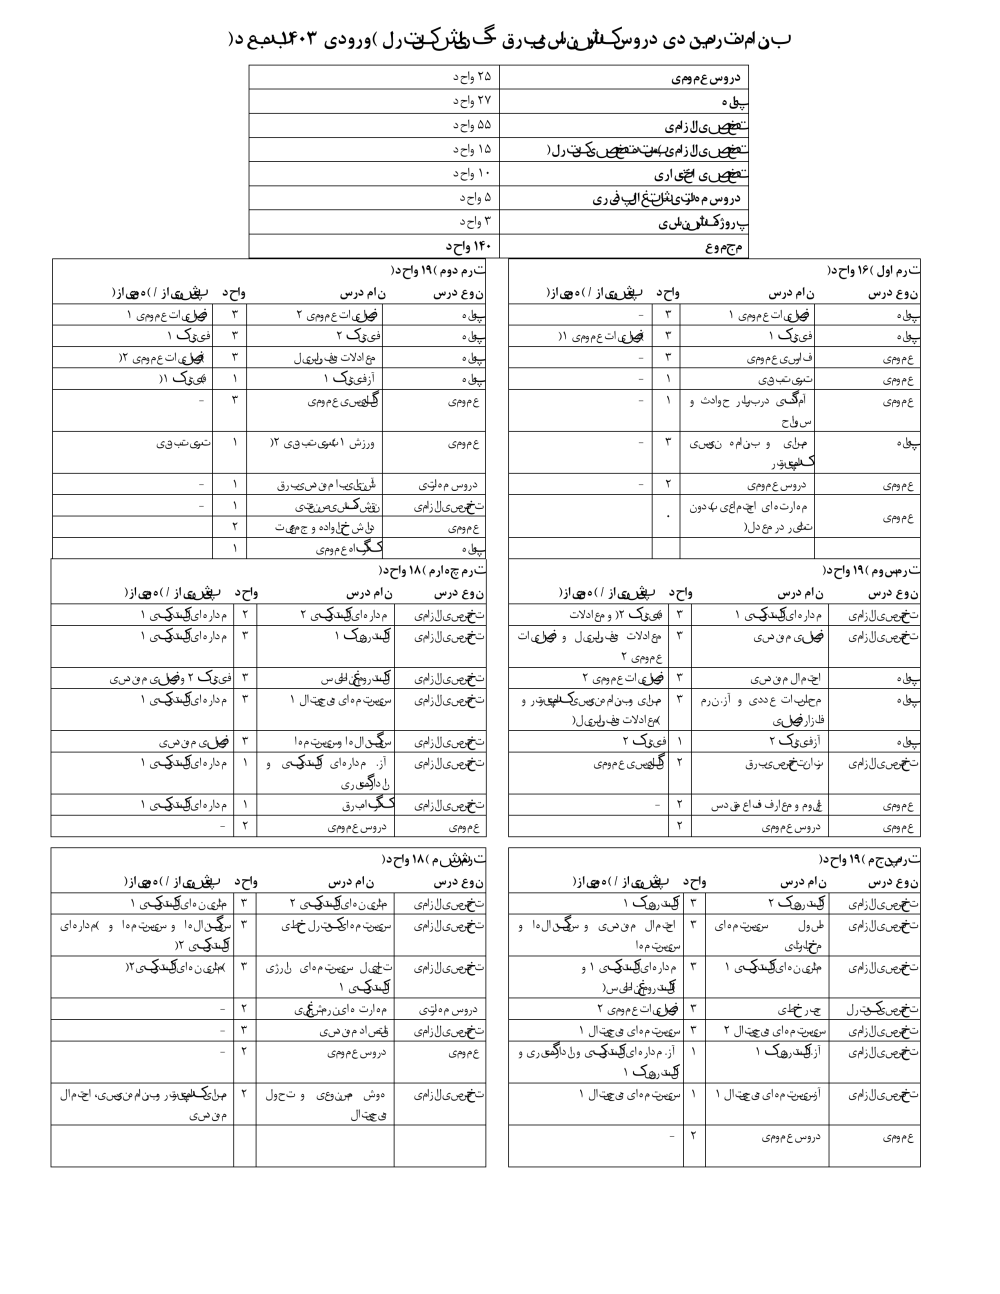 برنامه ترم‌بندی دروس کارشناسی برق - گرایش کنترل (ورودی ۱۴۰۳ به بعد)
دروس عمومی ۲۵ واحد
پایه ۲۷ واحد
تخصصی الزامی ۵۵ واحد
تخصصی الزامی (بسته تخصصی کنترل) ۱۵ واحد
تخصصی اختیاری ۱۰ واحد
دروس مهارتی-اشتغال‌پذیری ۵ واحد
پروژه کارشناسی ۳ واحد
مجموع ۱۴۰ واحد
ترم اول (۱۶ واحد)
نوع درس نام درس واحد پیش‌نیاز / (هم‌نیاز)
پایه ریاضیات عمومی ۱ ۳ -
پایه فیزیک ۱ ۳ (ریاضیات عمومی ۱)
عمومی فارسی عمومی ۳ -
عمومی تربیت بدنی ۱ -
عمومی آمادگی در برابر حوادث و ۱ -
سوانح
پایه مبانی و برنامه نویسی ۳ -
کامپیوتر
عمومی دروس عمومی ۲ -
عمومی مهارت‌های اجتماعی (بدون ۰
تاثیر در معدل)
ترم دوم (۱۹ واحد)
نوع درس نام درس واحد پیش‌نیاز / (هم‌نیاز)
پایه ریاضیات عمومی ۲ ۳ ریاضیات عمومی ۱
پایه فیزیک ۲ ۳ فیزیک ۱
پایه معادلات دیفرانسیل ۳ (ریاضیات عمومی ۲)
پایه آز فیزیک ۱ ۱ (فیزیک ۱)
عمومی انگلیسی عمومی ۳ -
عمومی ورزش ۱ (تربیت بدنی ۲) ۱ تربیت بدنی
دروس مهارتی آشنایی با مهندسی برق ۱ -
تخصصی الزامی نقشه‌کشی صنعتی ۱ -
عمومی دانش خانواده و جمعیت ۲
پایه کارگاه عمومی ۱
ترم سوم (۱۹ واحد)
نوع درس نام درس واحد پیش‌نیاز / (هم‌نیاز)
تخصصی الزامی مدارهای الکتریکی ۱ ۳ (فیزیک ۲) و معادلات
تخصصی الزامی ریاضی مهندسی ۳ معادلات دیفرانسیل و ریاضیات
عمومی ۲
پایه احتمال مهندسی ۳ ریاضیات عمومی ۲
پایه محاسبات عددی و آز. نرم ۳ مبانی و برنامه‌نویسی کامپیوتر و
افزار ریاضی (معادلات دیفرانسیل)
پایه آز فیزیک ۲ ۱ فیزیک ۲
تخصصی الزامی زبان تخصصی برق ۲ انگلیسی عمومی
عمومی علوم و معارف دفاع مقدس ۲ -
عمومی دروس عمومی ۲
ترم چهارم (۱۸ واحد)
نوع درس نام درس واحد پیش‌نیاز / (هم‌نیاز)
تخصصی الزامی مدارهای الکتریکی ۲ ۲ مدارهای الکتریکی ۱
تخصصی الزامی الکترونیک ۱ ۳ مدارهای الکتریکی ۱
تخصصی الزامی الکترومغناطیس ۳ فیزیک ۲ و ریاضی مهندسی
تخصصی الزامی سیستم‌های دیجیتال ۱ ۳ مدارهای الکتریکی ۱
تخصصی الزامی سیگنال‌ها و سیستم‌ها ۳ ریاضی مهندسی
تخصصی الزامی آز. مدارهای الکتریکی و ۱ مدارهای الکتریکی ۱
اندازه‌گیری
تخصصی الزامی کارگاه برق ۱ مدارهای الکتریکی ۱
عمومی دروس عمومی ۲ -
ترم پنجم (۱۹ واحد)
نوع درس نام درس واحد پیش‌نیاز / (هم‌نیاز)
تخصصی الزامی الکترونیک ۲ ۳ الکترونیک ۱
تخصصی الزامی اصول سیستم‌های ۳ احتمال مهندسی و سیگنال‌ها و
مخابراتی سیستم‌ها
تخصصی الزامی ماشین‌های الکتریکی ۱ ۳ مدارهای الکتریکی ۱ و
(الکترومغناطیس)
تخصصی کنترل جبر خطی ۳ ریاضیات عمومی ۲
تخصصی الزامی سیستم‌های دیجیتال ۲ ۳ سیستم‌های دیجیتال ۱
تخصصی الزامی آز. الکترونیک ۱ ۱ آز. مدارهای الکتریکی و اندازه‌گیری و
الکترونیک ۱
تخصصی الزامی آز سیستم‌های دیجیتال ۱ ۱ سیستم‌های دیجیتال ۱
عمومی دروس عمومی ۲ -
ترم ششم (۱۸ واحد)
نوع درس نام درس واحد پیش‌نیاز / (هم‌نیاز)
تخصصی الزامی ماشین‌های الکتریکی ۲ ۳ ماشین‌های الکتریکی ۱
تخصصی الزامی سیستم‌های کنترل خطی ۳ سیگنال‌ها و سیستم‌ها و (مدارهای
الکتریکی ۲)
تخصصی الزامی تحلیل سیستم‌های انرژی ۳ (ماشین‌های الکتریکی ۲)
الکتریکی ۱
دروس مهارتی مهارت‌های نرم شغلی ۲ -
تخصصی الزامی اقتصاد مهندسی ۳ -
عمومی دروس عمومی ۲ -
تخصصی الزامی هوش مصنوعی و تحول ۲ مبانی کامپیوتر و برنامه‌نویسی، احتمال
دیجیتال مهندسی